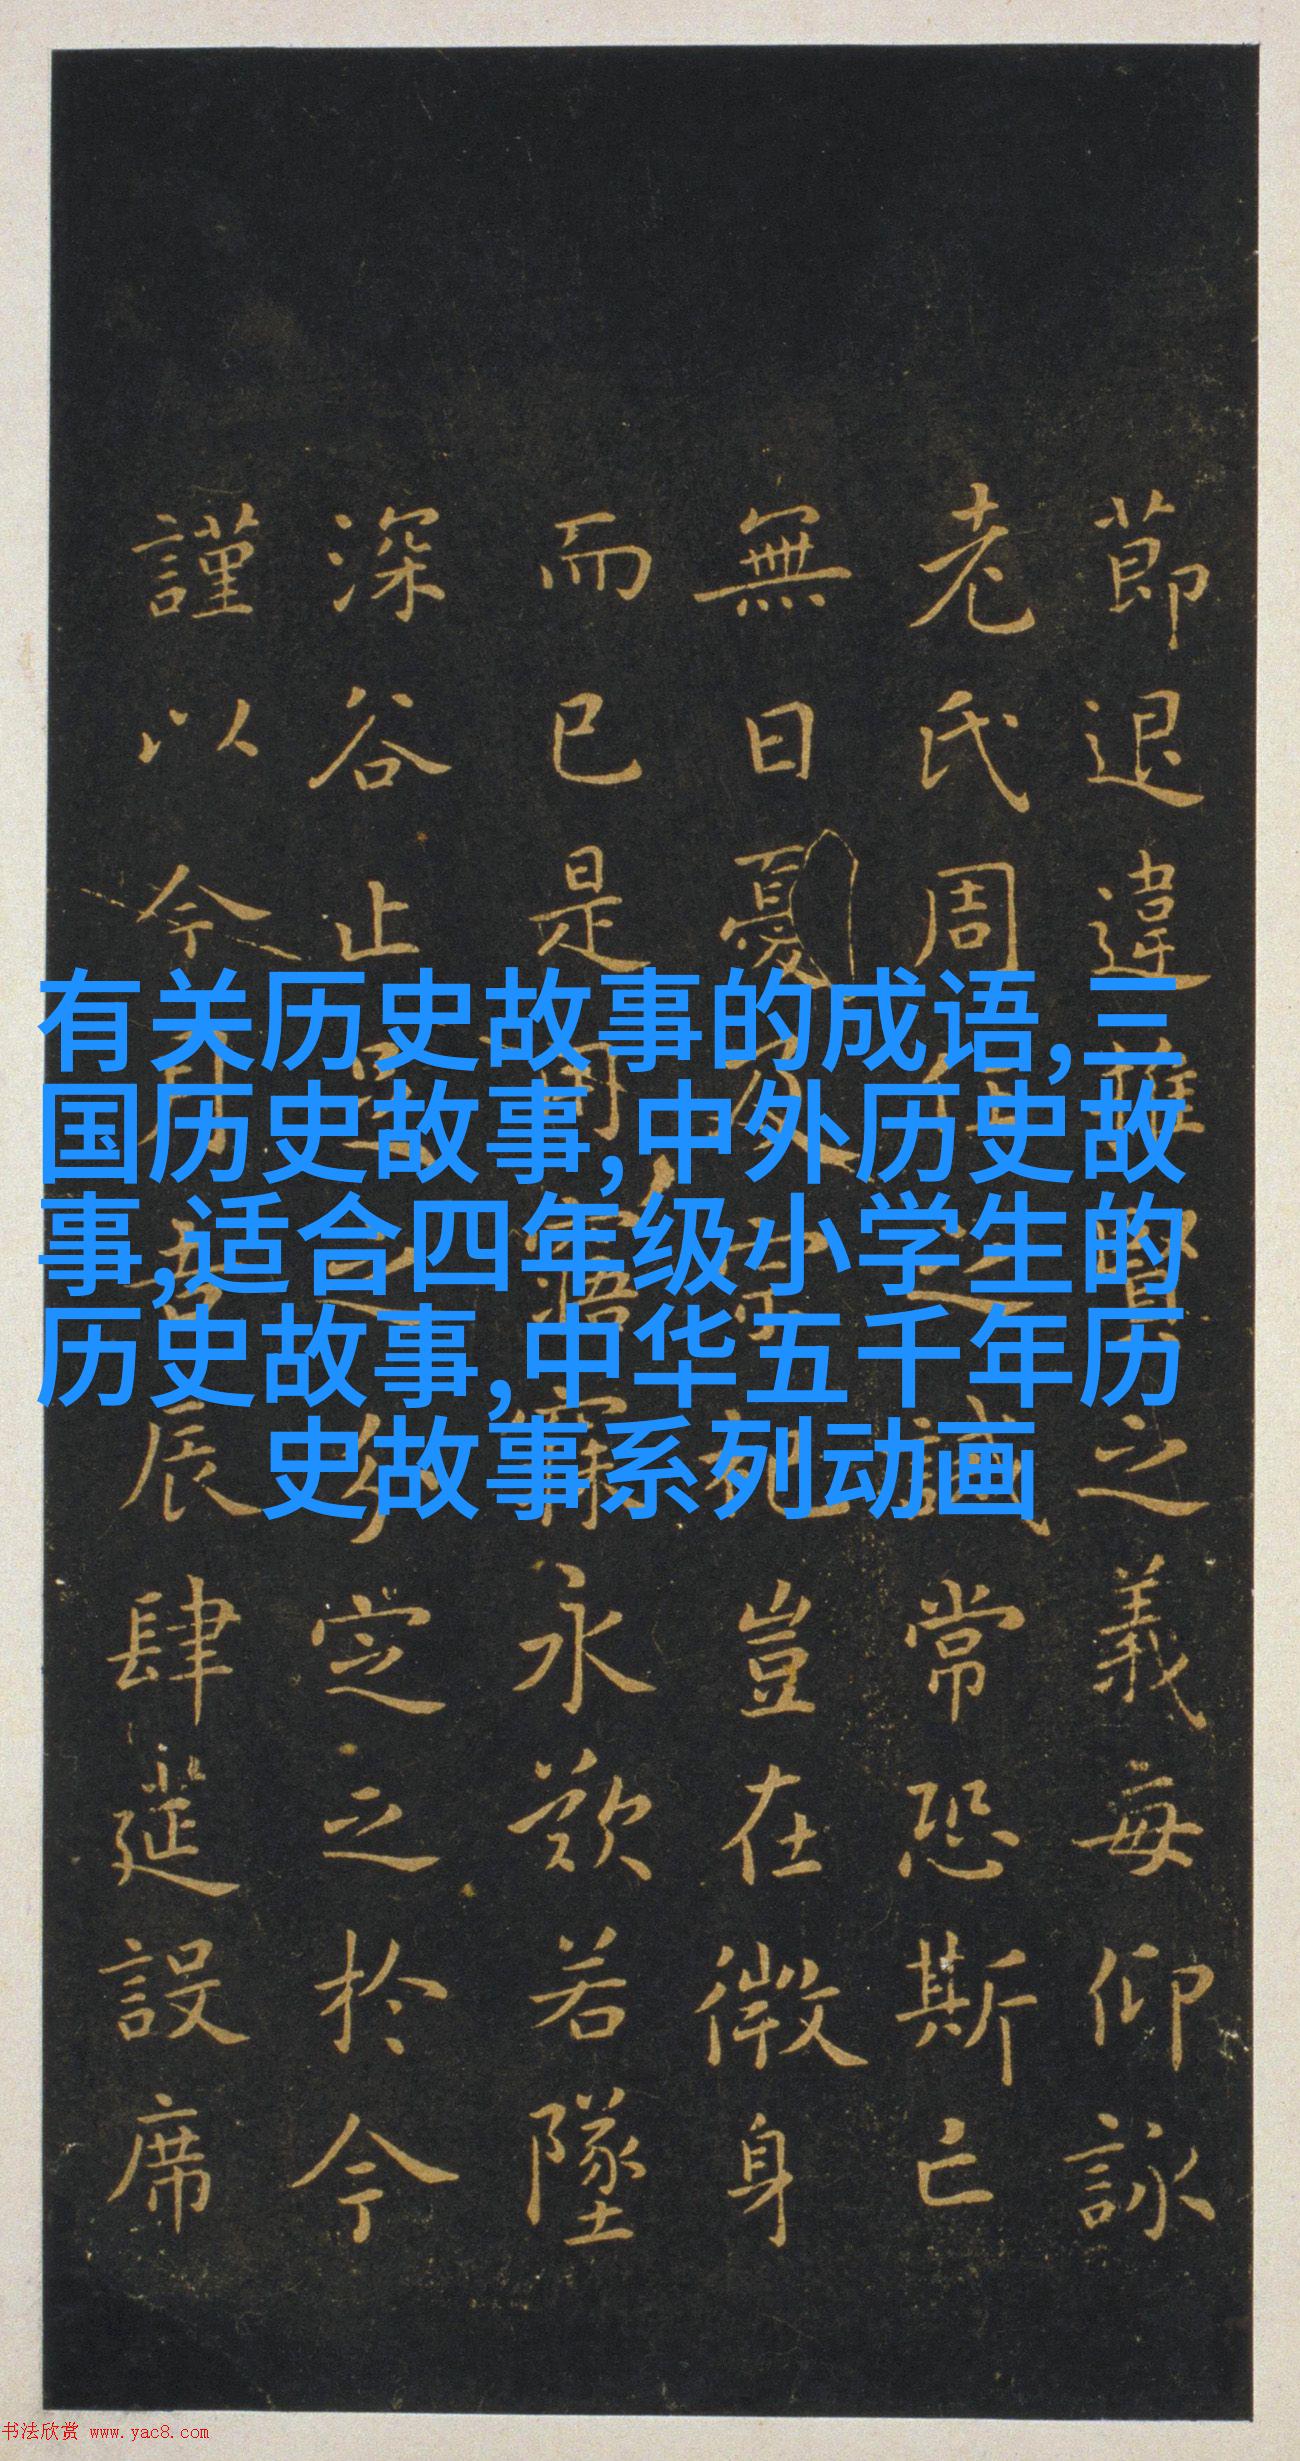 節退違難賢之義每仰詠
老氏周任之誡常恐斯亡
無日憂及宗祀豈在微身
而已是用寤寐永歎若墜
深谷止足之分定之於今
謹以今月吉辰肆莚設席
有关历史故事的成语,三
国历史故事,中外历史故
事,适合四年级小学生的
历史故事,中华五千年历
史故事系列动画
书法欣赏 www.yac8.com